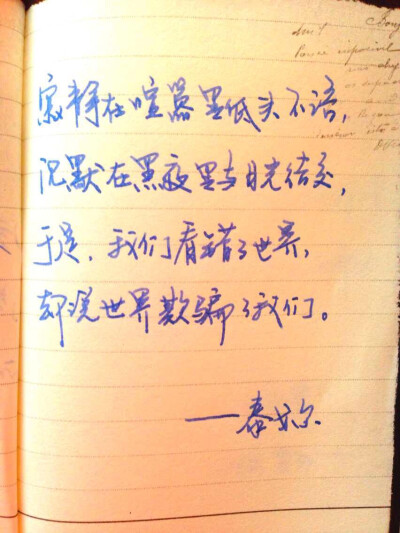 寂静在喧嚣里低头不语，
沉默在黑夜里与目光结交，
于是，我们看错了世界，
却说世界欺骗了我们。
——泰戈尔